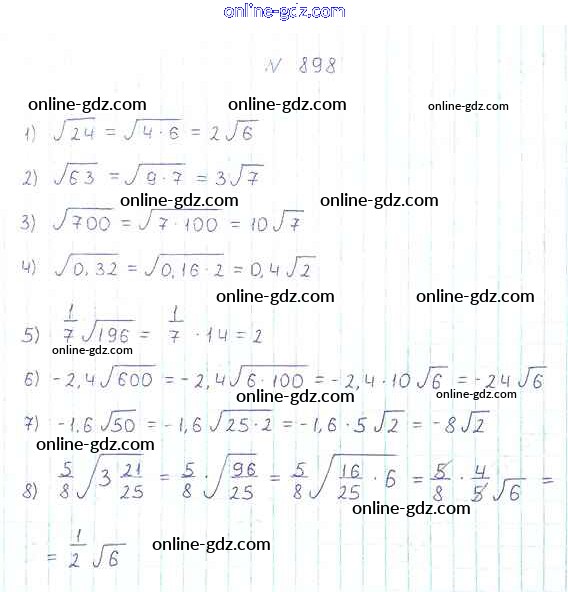 online-gdz.com
№ 898
online-gdz.com online-gdz.com online-gdz.com
1) √24 = √4·6 = 2√6
2) √63 = √9·7 = 3√7
online-gdz.com online-gdz.com
3) √700 = √7·100 = 10√7
4) √0,32 = √0,16·2 = 0,4√2
online-gdz.com online-gdz.com
5) 1/7 √196 = 1/7 · 14 = 2
online-gdz.com
6) -2,4√600 = -2,4√6·100 = -2,4·10√6 = -24√6
online-gdz.com
7) -1,6√50 = -1,6√25·2 = -1,6·5√2 = -8√2
online-gdz.com
8) 5/8 √3 21/25 = 5/8 · √96/25 = 5/8 √16/25 · 6 = 5/8 · 4/5 √6 =
online-gdz.com
= 1/2 √6
online-gdz.com